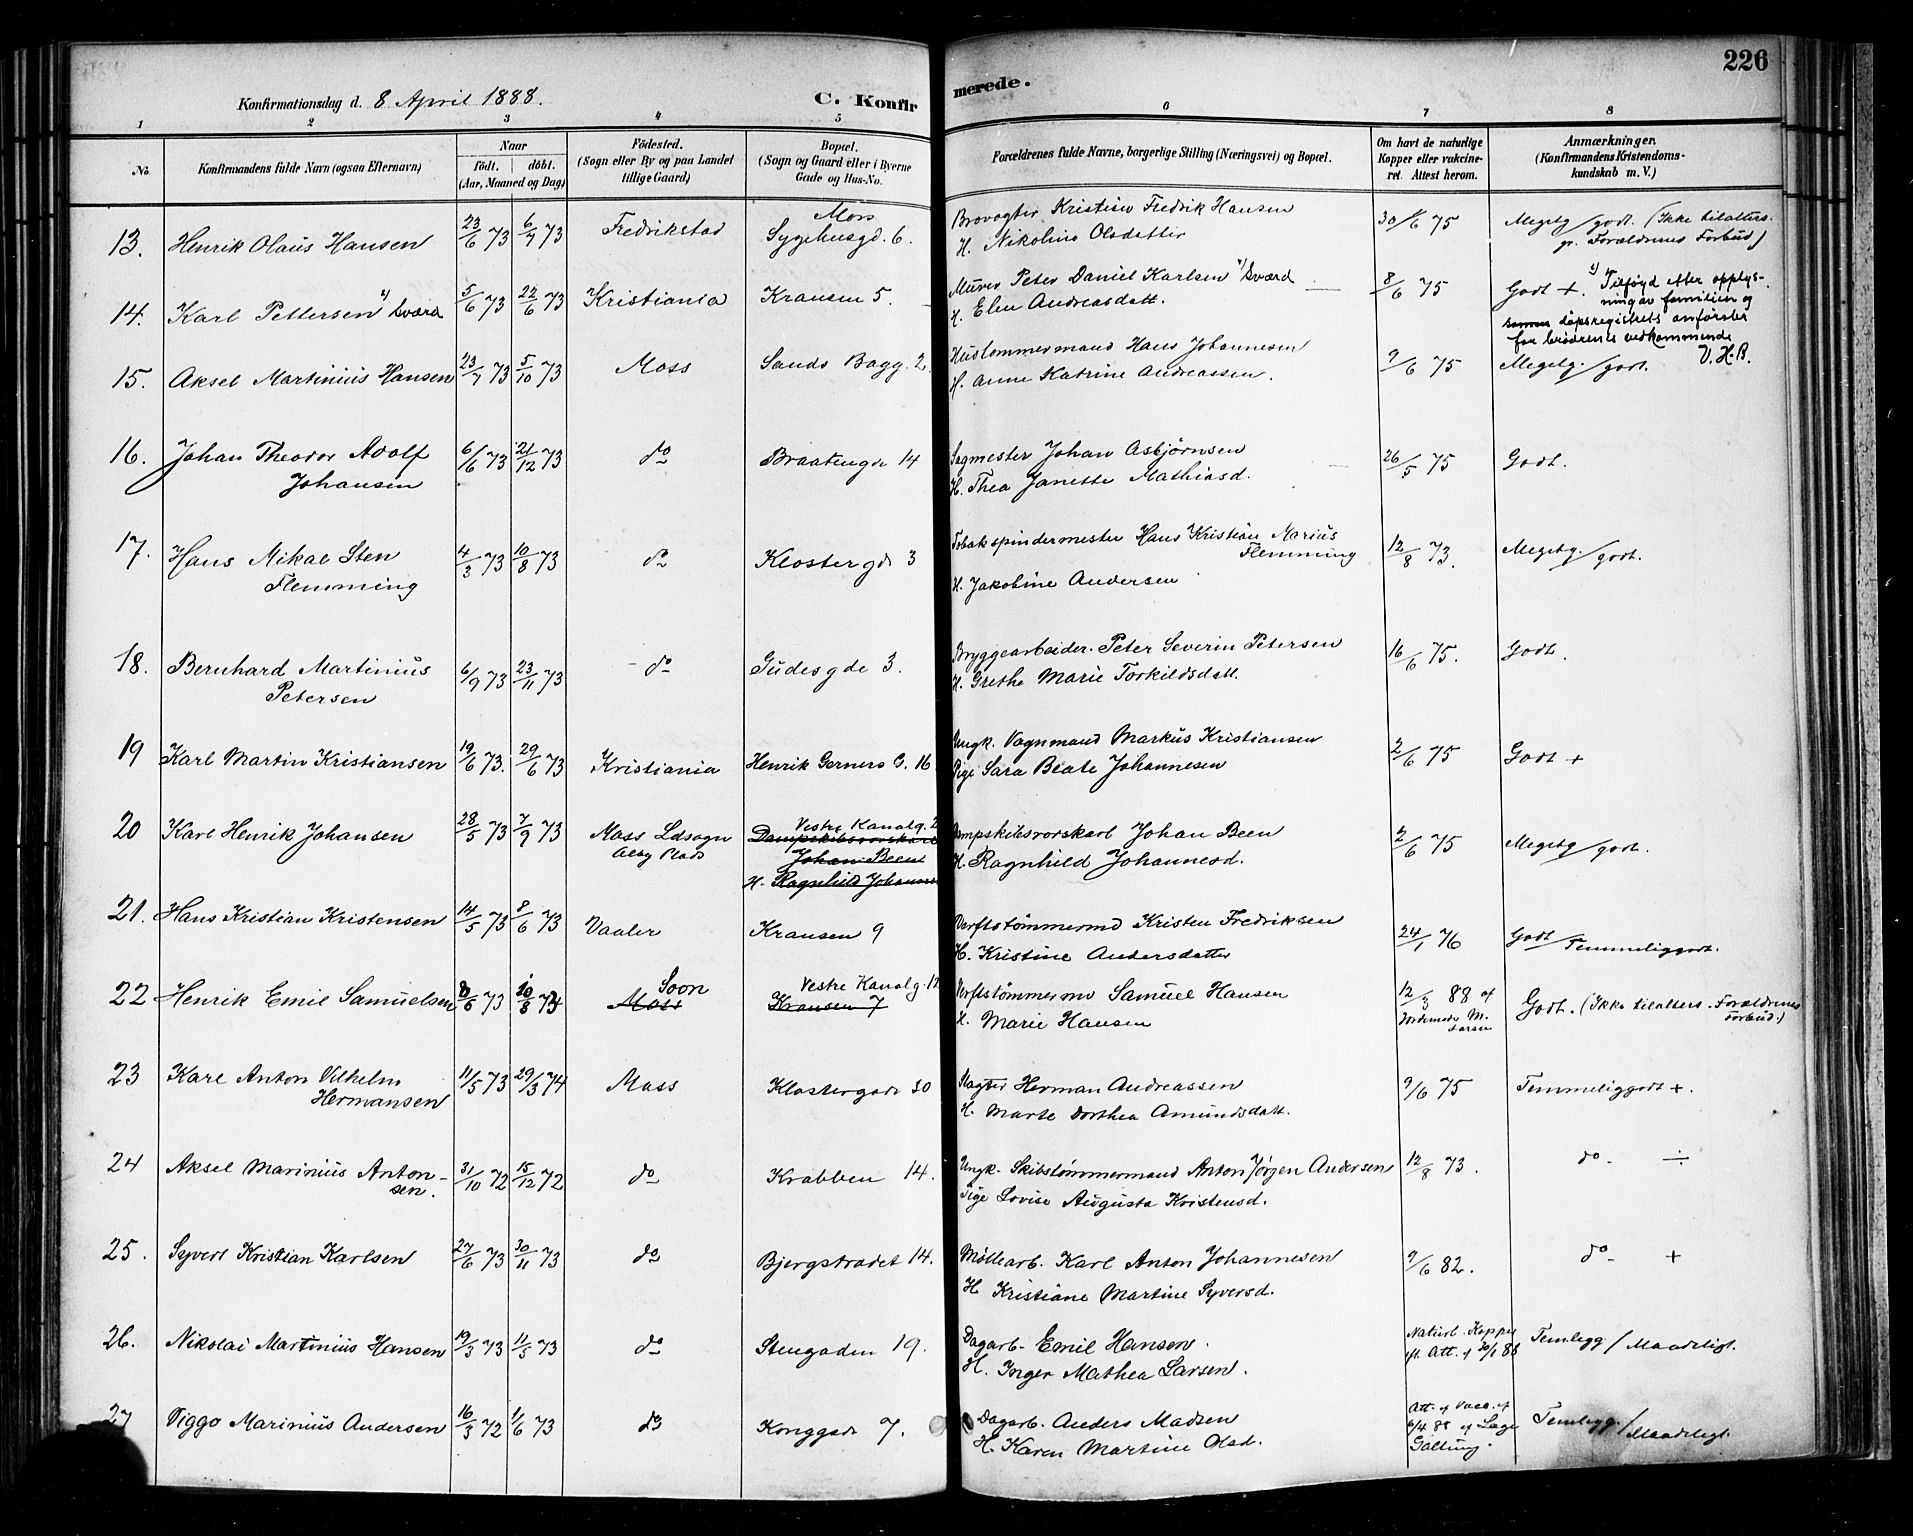 226
Konfirmationsdag d. 8 April 1888.
C. Konfir
merede.
1 2 3 4 5 6 7 8
No.
Konfirmandens fulde Navn (ogsaa Efternavn)
Naar
födt. döbt.
(Aar, Maaned og Dag)
Födested.
(Sogn eller By og paa Landet
tillige Gaard)
Bopæl.
(Sogn og Gaard eller i Byerne
Gade og Hus-No.
Forældrenes fulde Navne, borgerlige Stilling (Næringsvei) og Bopæl.
Om havt de naturlige
Kopper eller vakcine-
ret. Attest herom.
Anmærkninger.
(Konfirmandens Kristendoms-
kundskab m. V.)
13. Henrik Olaus Hansen 23/6 73 6/7 73 Fredrikstad Moss
Sygehusgd. 6. Brovogter Kristian Fredrik Hansen
H. Nikoline Olsdatter 30/6 75 Megetg/godt. (Ikke tilalters.
gr. Forældrenes Forbud)
14. Karl Pettersen 1) Sværd 5/6 73 22/6 73 Kristiania Kransen 5. Murer Peter Daniel Karlsen 1) Sværd
H. Elen Andreasdatt. 8/6 75 Godt +. 1) Tilføyd efter opplys-
ning av familien og
samm døpsregistrets anførsler
for brødrenes vedkommende
V. H. B.
15. Aksel Martinius Hansen 23/7 73 5/10 73 Moss Sands Bagg. 2. Hustømmermand Hans Johannesen
H. Anne Katrine Andreassen. 9/6 75 Megetg./godt.
16. Johan Theodor Adolf
Johansen 6/6 73 21/12 73 do Braatengde 14 Sagmester Johan Asbjørnsen
H. Thea Janette Mathiasd. 26/5 75 Godt.
17. Hans Mikal Sten
Flemming 4/3 73 10/8 73 do Klostergde 3 Tobakspindermester Hans Kristian Marius
Flemming
H. Jakobine Andersen 12/8 73. Megetg./godt.
18. Bernhard Martinius
Petersen 6/9 73 23/11 73 do Gudesgde 3. Bryggearbeider. Peter Severin Petersen
H. Grethe Marie Torkildsdatt. 16/6 75. Godt.
19 Karl Martin Kristiansen 19/6 73. 29/6 73 Kristiania Henrik Gerners G. 16 Ungk. Vognmand Markus Kristiansen
Pige Sara Beate Johannesen 2/6 75 Godt +
20 Karl Henrik Johansen 28/5 73 7/9 73 Moss Ldsogn
Alby Plads Vestre Kanalg. 2
Dampskibsvorskarl
Johan Been
H. Ragnhild Johannes Dampskibsvorskarl Johan Been
H. Ragnhild Johannesd. 2/6 75 Megetg/godt.
21. Hans Kristian Kristensen 14/5 73 8/6 73 Vaaler Kransen 9 Verftstømmermd Kristen Fredriksen
H. Kristine Andersdatter 24/1 76 Godt/Temmeliggodt.
22 Henrik Emil Samuelsen 8/6 73 10/8 73 Soon
Moss Vestre Kanalg. 12
Kransen 7 Verftstømmermd Samuel Hansen
H. Marie Hansen 12/3 88 af
Jordemoder M.
Larsen Godt. (Ikke tilalters. Forældrenes
Forbud.)
23 Karl Anton Vilhelm
Hermansen 11/5 73 29/3 74 Moss Klostergade 30 Vagter Herman Andreassen
H. Marte Dorthea Amundsdatt. 9/6 75 Temmeliggodt +.
24 Aksel Marinius Anton-
sen. 31/10 72 15/12 72 do Krabben 14. Ungk. Skibstømmermand Anton Jørgen Andersen
Pige Lovise Augusta Kristensd. 12/8 73. do ÷
25. Syvert Kristian Karlsen 27/6 73 30/11 73 do Bjergstrædet 14. Møllearb. Karl Anton Johannesen
H Kristiane Martine Syversd. 9/6 82. do +
26. Nikolai Martinius Hansen 19/3 73 11/5 73 do Stengaden 19. Dagarb. Emil Hansen.
H. Inger Mathea Larsen. Naturl. Kopper
eft. Att. af 30/1 88 Temlegg./Maadeligt.
27 Viggo Marinius Andersen 16/3 72 1/6 73 do Konggade 7. Dagarb. Anders Madsen
H. Karen Martine Olsd. Att. af Vacc. af
6/4 88 af Læge
Galtung. Temlegg./Maadeligt.